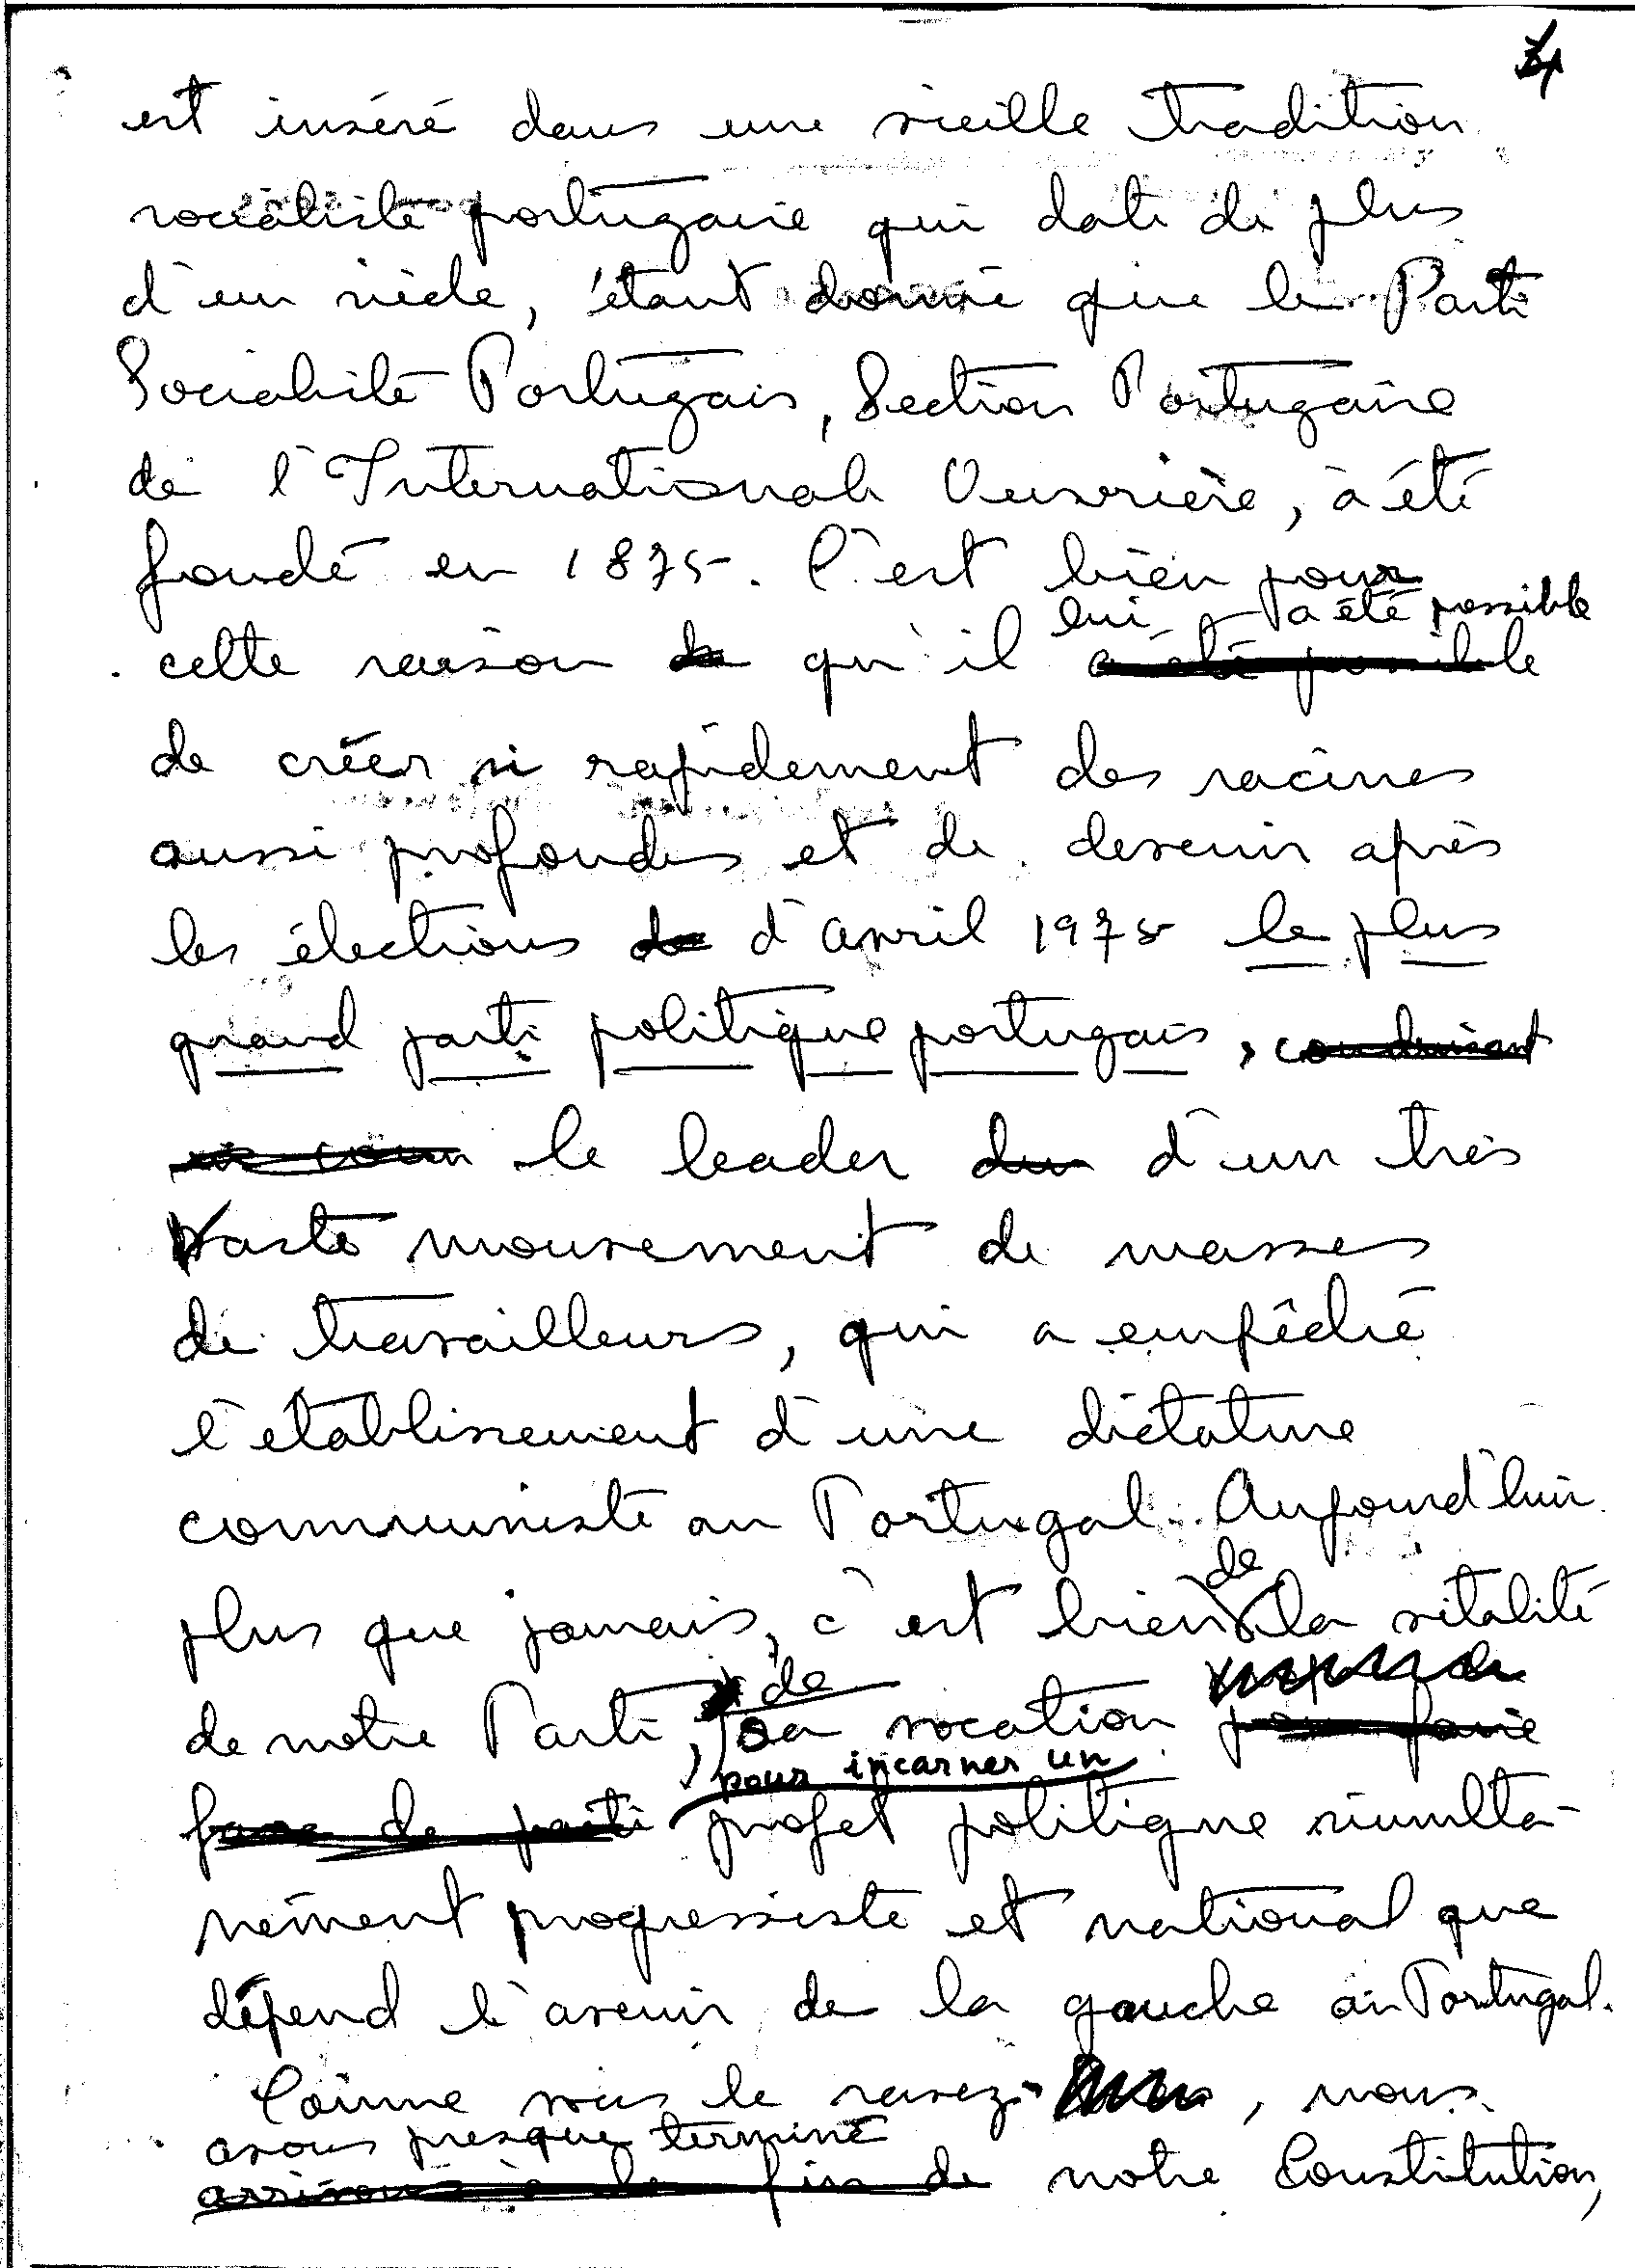 4
est inséré dans une vieille tradition
socialiste portugaise qui date de plus
d'un siècle, étant donné que le Parti
Socialiste Portugais, Section Portugaise
de l'Internationale Ouvrière, a été
fondé en 1875. C'est bien pour
lui a été possible
cette raison de qu'il a été possible
de créer si rapidement des racines
aussi profondes et de devenir après
les élections de d'avril 1975 le plus
grand parti politique portugais, conduisant
le leader du d'un très
vaste mouvement de masses
de travailleurs, qui a empêché
l'établissement d'une dictature
communiste au Portugal. Aujourd'hui
de
plus que jamais, c'est bien la vitalité
de
de notre Parti, sa vocation pour faire
pour incarner un
face de parti projet politique simulta-
nément progressiste et national que
dépend l'avenir de la gauche au Portugal.
Comme vous le savez, nous
avons presque terminé
arrivons à la fin de notre Constitution,